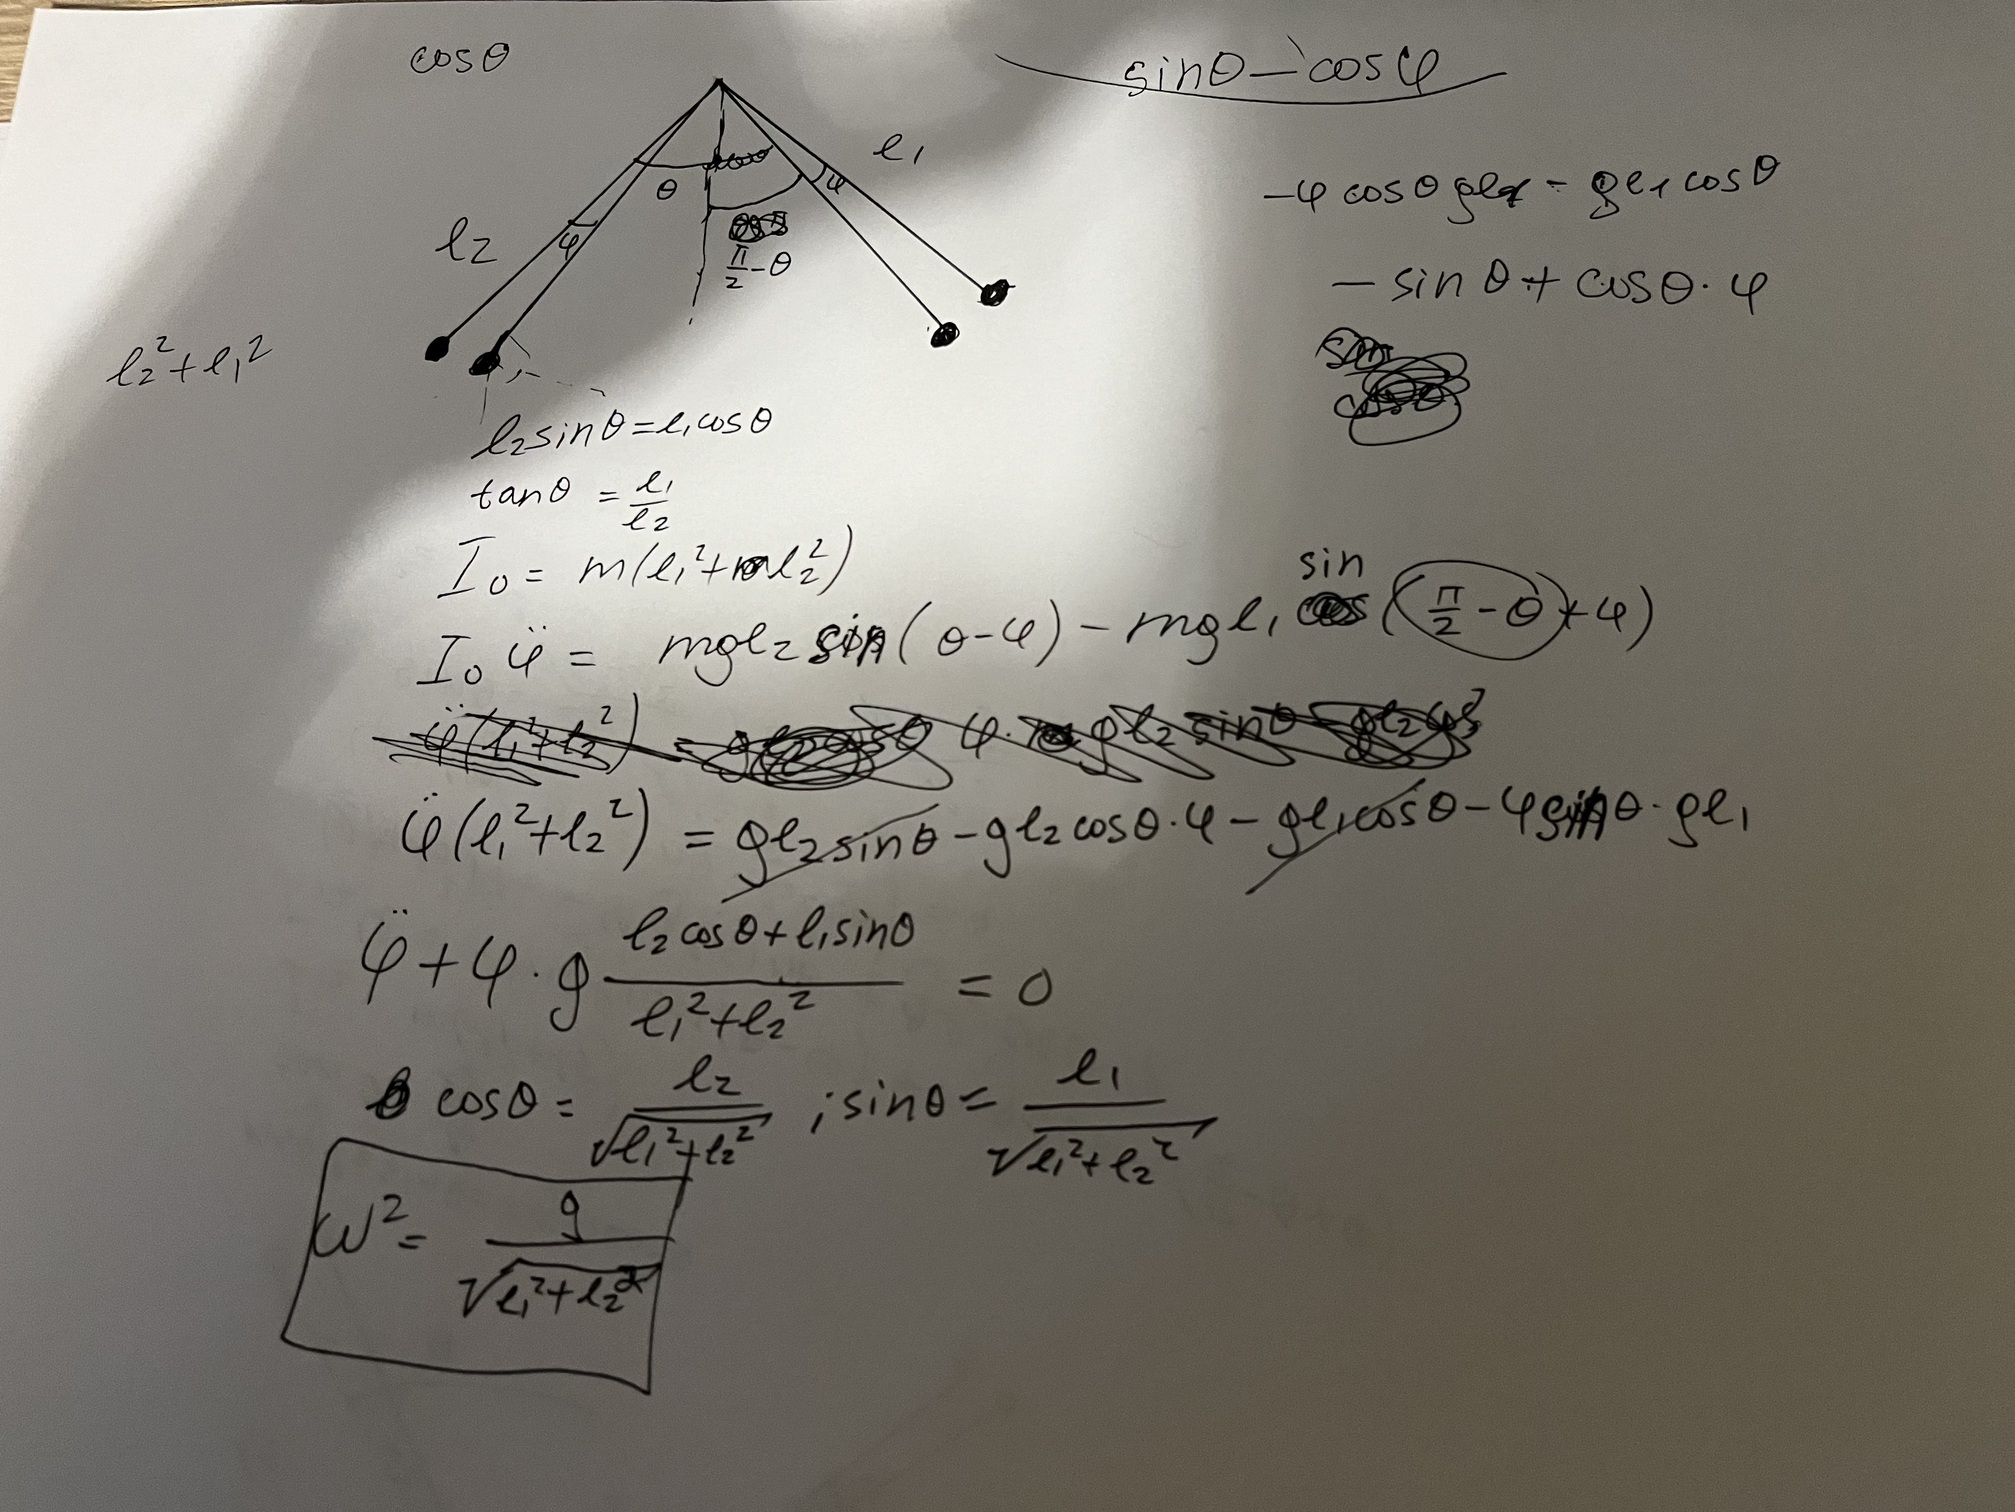 cosθ
sinθ - cosφ
l₁
θ
φ
φ
l₂
π/2 - θ
-φ cosθ gl₂ - gl₁ cosθ
- sin θ + cosθ · φ
l₂² + l₁²
l₂ sinθ = l₁ cosθ
tanθ = l₁/l₂
I₀ = m(l₁² + l₂²)
I₀ φ̈ = mgl₂ sin(θ-φ) - mgl₁ sin(π/2 - θ + φ)
φ̈(l₁² + l₂²) = gl₂ sinθ - gl₂ cosθ · φ - gl₁ cosθ - φ sinθ · gl₁
φ̈ + φ · g (l₂ cosθ + l₁ sinθ)/(l₁² + l₂²) = 0
cosθ = l₂/√(l₁² + l₂²) ; sinθ = l₁/√(l₁² + l₂²)
ω² = g/√(l₁² + l₂²)